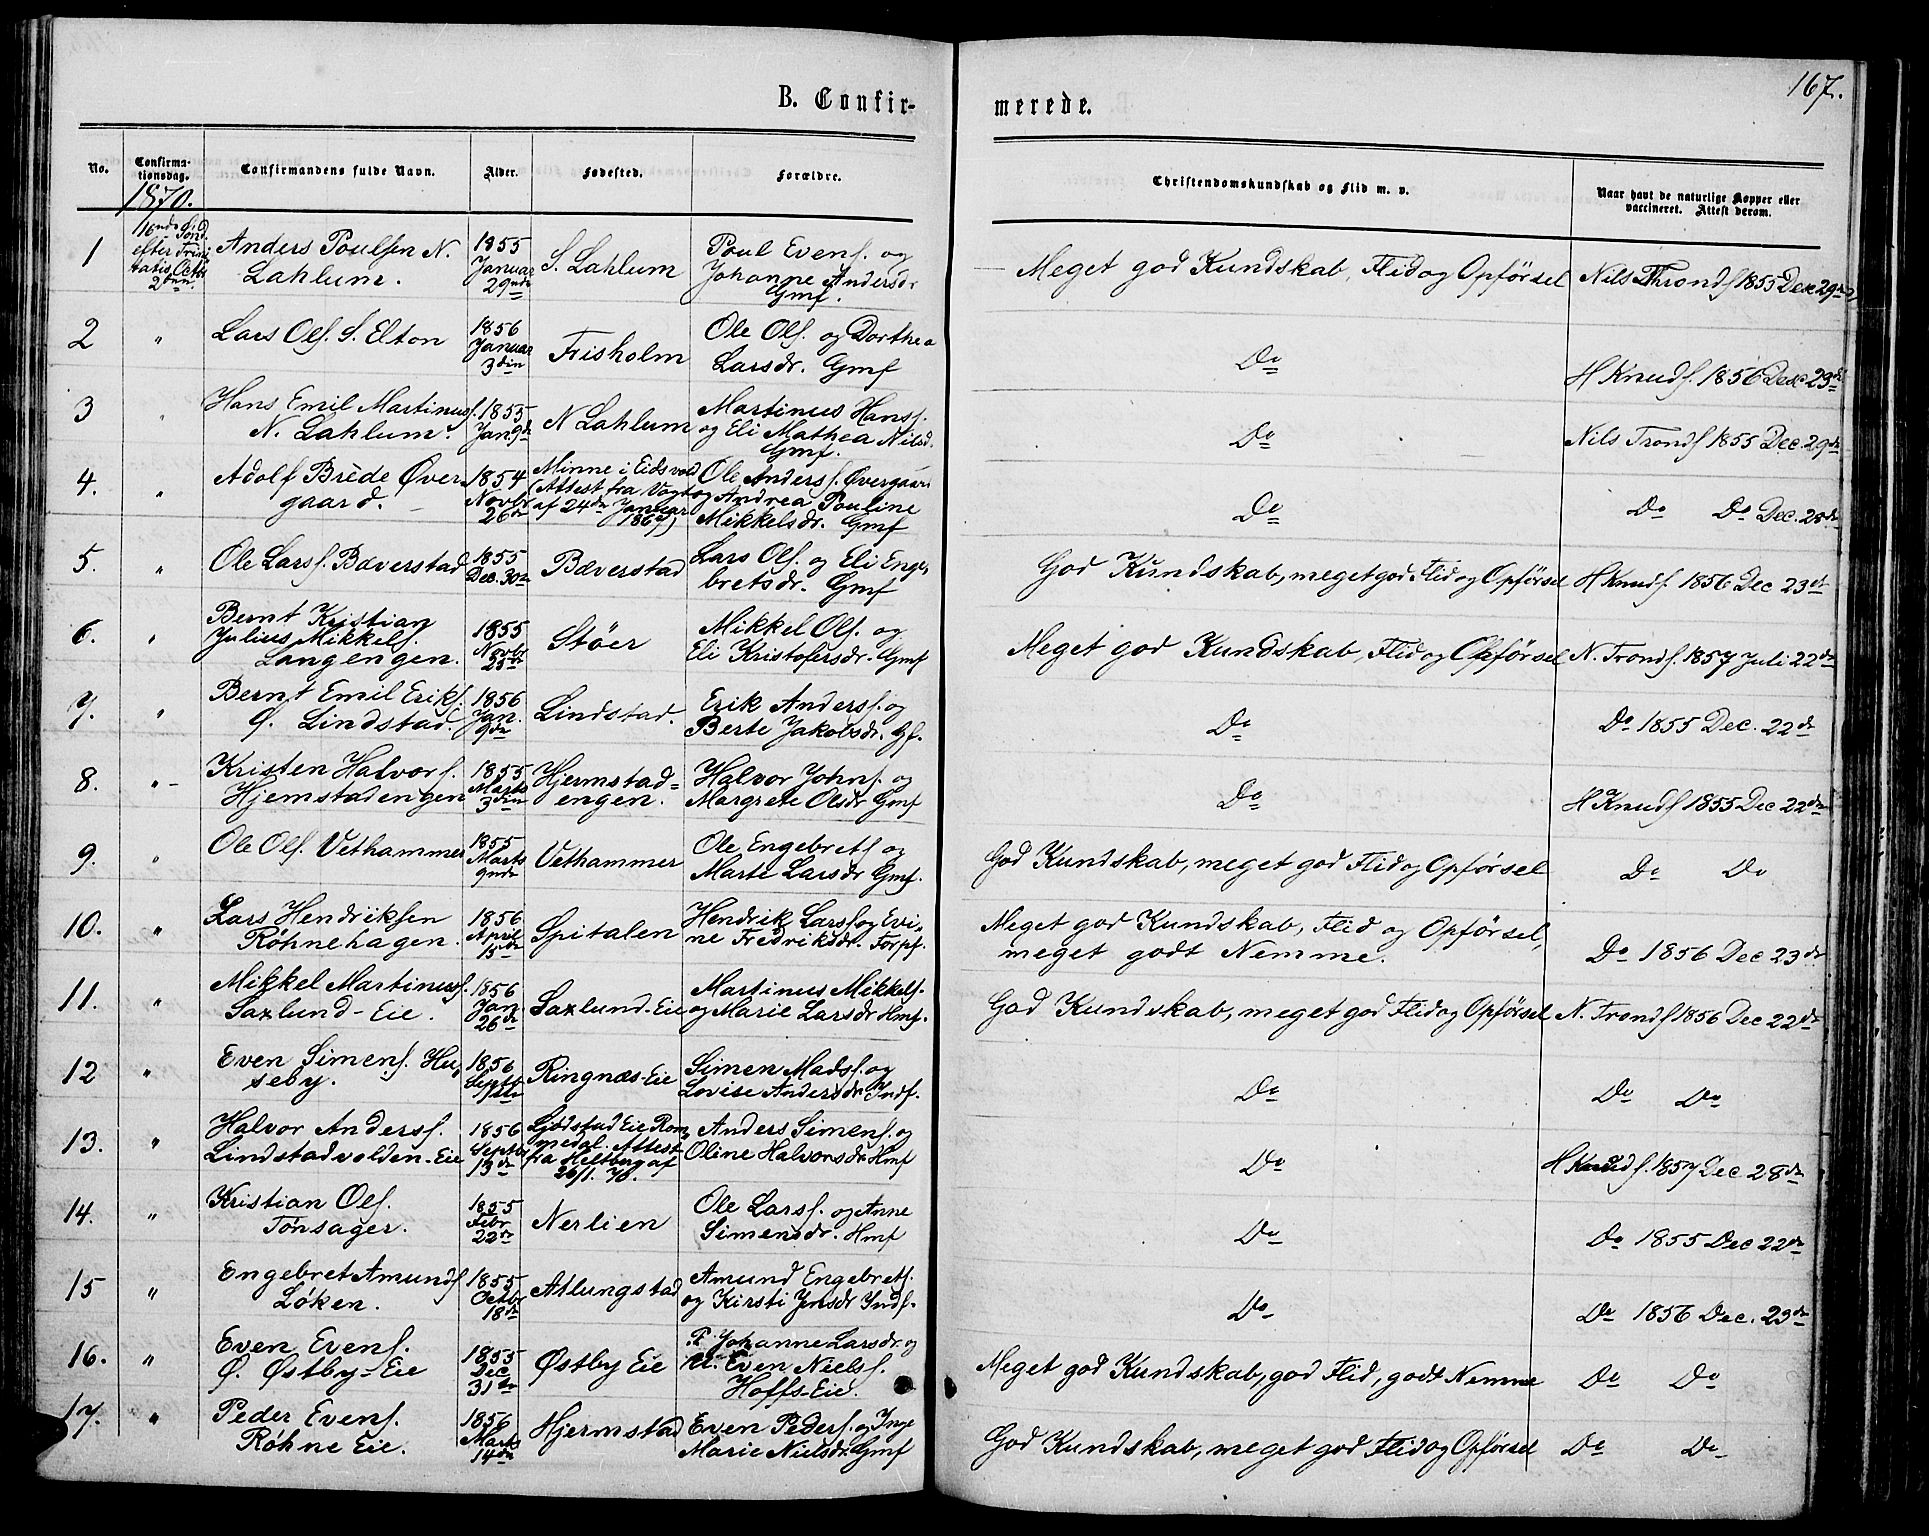 167.
B. Confirmerede.
No.
Confirmationsdag.
Confirmandens fulde Navn.
Alder.
Fødested.
Forældre.
Christendomskundskab og Flid m. v.
Naar havt de naturlige Kopper eller vaccineret. Attest derom.
1870.
1
16nde Sönd.
efter Trini
tatis Octbr
2den
Anders Poulsen N.
Lahlum.
1855
Januar
29nde
S. Lahlum
Poul Evens. og
Johanne Andersdr
Gmf.
Meget god Kundskab, Flid og Opførsel
Nils Throndf 1855 Dec 29de
2
"
Lars Ols. S. Elton
1856
Januar
3din
Frisholm
Ole Ols. og Dorthea
Larsdr. Gmf
Do
H Knuds. 1856 Dec 23de
3
"
Hans Emil Martinus.
N. Lahlum.
1855
Jan. 9de
N Lahlum
Martinus Hans.
og Eli Mathea Nilsd.
Gmf.
Do
Nils Trondf 1855 Dec. 29de
4.
"
Adolf Brede Øver
gaard.
1854
Novbr
26de
Minne i Eidsvold
(Attest fra Vogt
af 24de Januar
Ole Anders. Øvergaard
og Andrea Pouline
Mikkelsdr. Gmf
Do
Do Do Dec. 25de
5.
"
Ole Lars. Bæverstad
1855
Dec. 30te
Bæverstad
Lars Ols. og Eli Enge
bretsdr. Gmf
God Kundskab, meget god Flid og Opførsel
H Knuds. 1856 Dec 23de
6.
"
Bernt Kristian
Julius Mikkels.
Langengen.
1855
Novbr
25de
Støer
Mikkel Ols. og
Eli Kristofersdr. Gmf
Meget god Kundskab, Flid og Opførsel
N. Tronds. 1857 Juli 22de
7.
"
Bernt Emil Eriks.
Ø. Lindstad.
1856
Jan.
9de
Lindstad.
Erik Anders. og
Berte Jakobsdr. Gf.
Do
Do 1855 Dec. 22de
8.
"
Kristen Halvors.
Hjemstadengen
1855
Marts
3din
Hjermstad=
engen.
Halvor Johns. og
Margrete Olsdr Gmf
Do
H Knuds 1855 Dec 22de
9.
"
Ole Ols. Vethammer
1855
Marts
9nde
Vethammer
Ole Engebrets og
Marte Larsdr Gmf.
God Kundskab, meget god Flid og Opførsel
Do Do
10.
"
Lars Hendriksen
Røhnehagen.
1856
April
15de
Spitalen
Hendrik Lars. og Evi=
ne Fredriksdr. Forpf.
Meget god Kundskab, Flid og Opførsel,
meget godt Nemme.
Do 1856 Dec 23de
11.
"
Mikkel Martinus.
Saxlund-Eie.
1856
Jan.
26de
Saxlund-Eie
Martinus Mikkels.
og Marie Larsdr Hmf.
God Kundskab, meget god Flid og Opførsel
N. Trondf 1856 Dec 22de
12
"
Even Simens. Hu=
seby.
1856
Septb.
Ringnæs-Eie
Simen Mads. og
Lovise Andersdr Indf.
Do
Do Do
13.
"
Halvor Anders.
Lindstadvolden-Eie
1856
Septbr
13de
Ljødstad Eie Rom
medal. Attest
fra Heltberg af
26/1. 70.
Anders Simens. og
Oline Halvorsdr Hmf
Do
H Knuds. 1857 Dec 28de
14.
"
Kristian Ols.
Tonsager.
1855
Febr
22de
Nerlien
Ole Lars. og Anne
Simensdr. Hmf
Do
Do 1855 Dec 22de
15
"
Engebret Amunds
Løken.
1855
Octbr
18de
Atlungstad
Amund Engebrets.
og Kirsti Jensdr Indf.
Do
Do 1856 Dec. 23de
16.
"
Even Evens.
Ø. Østby-Eie
1855
Dec
31te
Østby Eie
P. Johanne Larsdr. og
U. Even Niels.
Hoffs-Eie.
Meget god Kundskab, god Flid, godt Nemme
Do Do
17.
"
Peder Evens.
Røhne Eie.
1856
Marts
14de
Hjermstad
Even Peders. og Inge
Marie Nielsdr. Gmf
God Kundskab, meget god Flid og Opførsel
Do Do